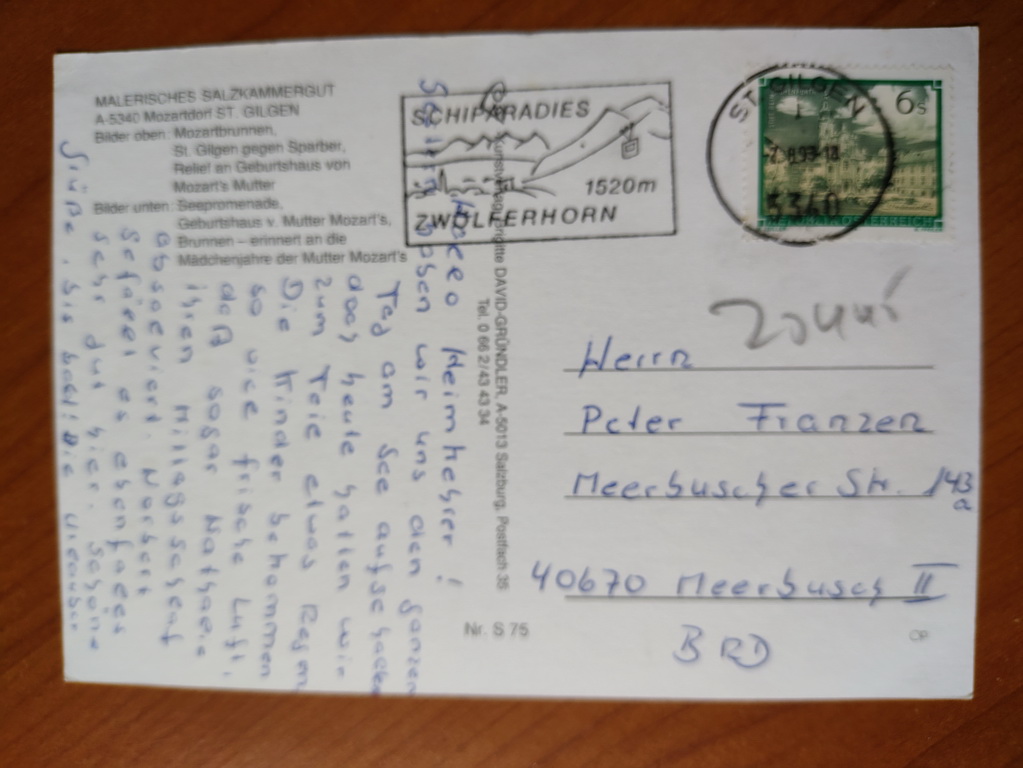 MALERISCHES SALZKAMMERGUT
A-5340 Mozartdorf ST. GILGEN
Bilder oben: Mozartbrunnen,
St. Gilgen gegen Sparber,
Relief an Geburtshaus von
Mozart's Mutter
Bilder unten: Seepromenade,
Geburtshaus v. Mutter Mozart's,
Brunnen – erinnert an die
Mädchenjahre der Mutter Mozart's
SCHIPARADIES
1520m
ZWÖLFERHORN
ST. GILGEN
5340
6s
REPUBLIK ÖSTERREICH
Kunstverlag Brigitte DAVID-GRÜNDLER, A-5013 Salzburg, Postfach 35
Tel. 0 66 2/43 43 34
Nr. S 75
Heimkehrer!
haben wir uns den ganzen
Tag am See aufgehalten
doch heute hatten wir
zum Teil etwas Regen
Die Kinder bekommen
so wie frische Luft,
daß sogar
ihren Mittagsschlaf
absolviert. Norbert
gefällt es ebenfalls
sehr gut hier. Schöne
Grüße, bis bald! Die Urlauber
Herrn
Peter Franzen
Meerbuscher Str. 143
a
40670 Meerbusch II
BRD